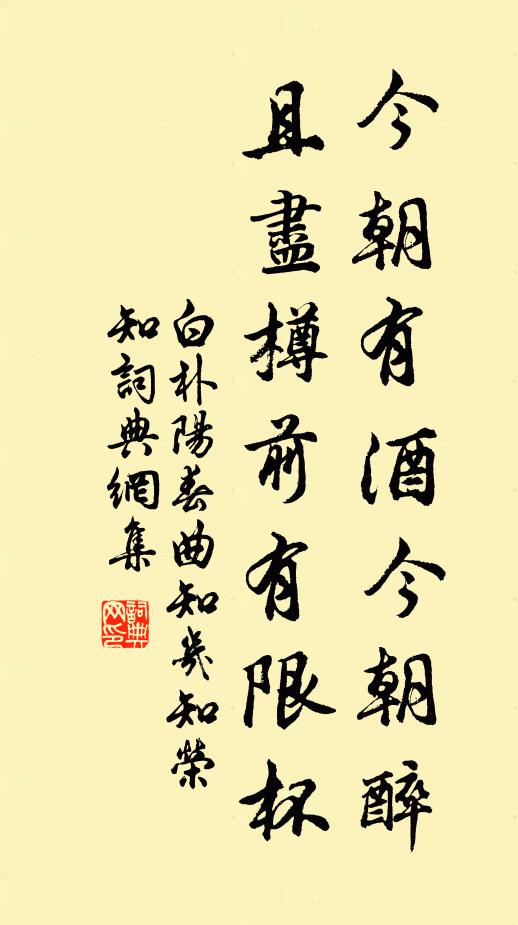 今朝有酒今朝醉
且盡樽前有限杯
白朴陽春曲知幾知榮
知詞典網集
詞典網印